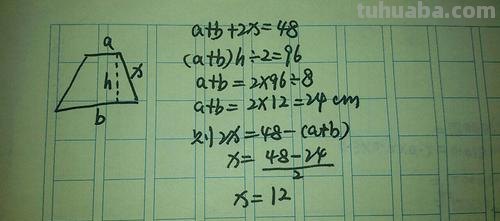 tuhuaba.com
a
h
x
b
a+b+2x=48
(a+b)h÷2=96
a+b=2×96÷8
a+b=2×12=24 cm
则 2x=48-(a+b)
x=48-24/2
x=12